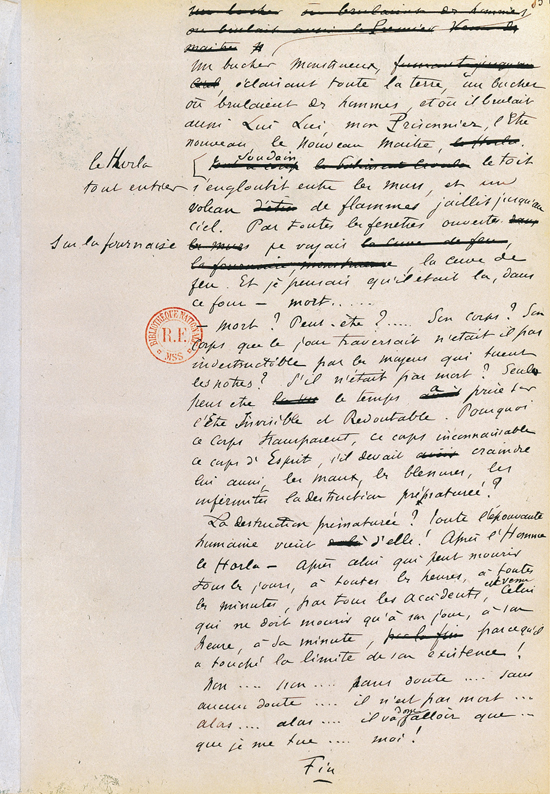 Un bucher où brulaient des hommes
ou brulait aussi le Premier
maitre
Un bucher monstrueux, fumant jusqu'au
ciel, éclairant toute la terre, un bucher
où brulaient des hommes, et où il brulait
aussi Lui Lui, mon Prisonnier, l'Etre
nouveau le Nouveau Maitre, le Horla.
le Horla
tout entier
Soudain le toit
s'engloutit entre les murs, et un
volcan de flammes jaillit jusqu'au
ciel. Par toutes les fenêtres ouvertes
sur la fournaise
les murs je voyais la cuve de feu,
la fournaise monstrueuse, la cuve de
feu. Et je pensais qu'il était là, dans
ce four — mort......
— mort ? Peut-être ?..... Son corps ? Son
corps que le jour traversait n'était il pas
indestructible par les moyens qui tuent
les notres ? S'il n'était pas mort ? Seul
peut etre le temps a prise sur
l'Etre Invisible et Redoutable. Pourquoi
ce corps transparent, ce corps inconnaissable
ce corps d'Esprit, s'il devait craindre
lui aussi, les maux, les blessures, les
infirmités la destruction prématurée ?
La destruction prématurée ? Toute l'épouvante
humaine vient d'elle ! Après l'Homme
le Horla — Après celui qui peut mourir
tous les jours, à toutes les heures, à toutes
les minutes, par tous les accidents, est venu Celui
qui ne doit mourir qu'à son jour, à son
heure, à sa minute, par la fin parcequ'il
a touché la limite de son existence !
Non .... non .... sans doute .... sans
aucun doute .... il n'est pas mort ...
alors .... alors .... il va donc falloir que ...
que je me tue .... moi !
Fin
BIBLIOTHÈQUE NATIONALE
R.F.
MSS